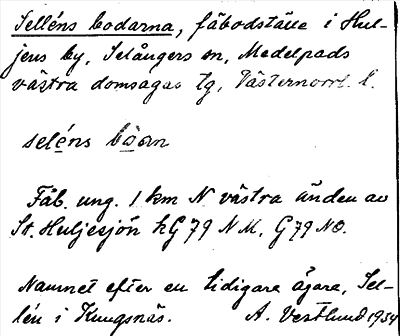 Selléns bodarna, fäbodställe i Hul-
jens by, Selångers sn, Medelpads
västra domsagas tg, Västernorrl. l.
seléns bòan
Fäb. ung. 1 km N västra änden av
St. Huljesjön hG79 NM, G79 NO.
Namnet efter en tidigare ägare, Sel-
lén i Kungsnäs. A. Vestlund 1934